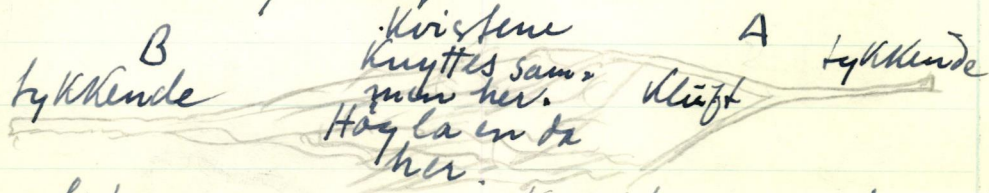 B
tykkende
Kvistene
knyttes sam=
men her.
Høy la en da
her.
A
Kluft
tykkende